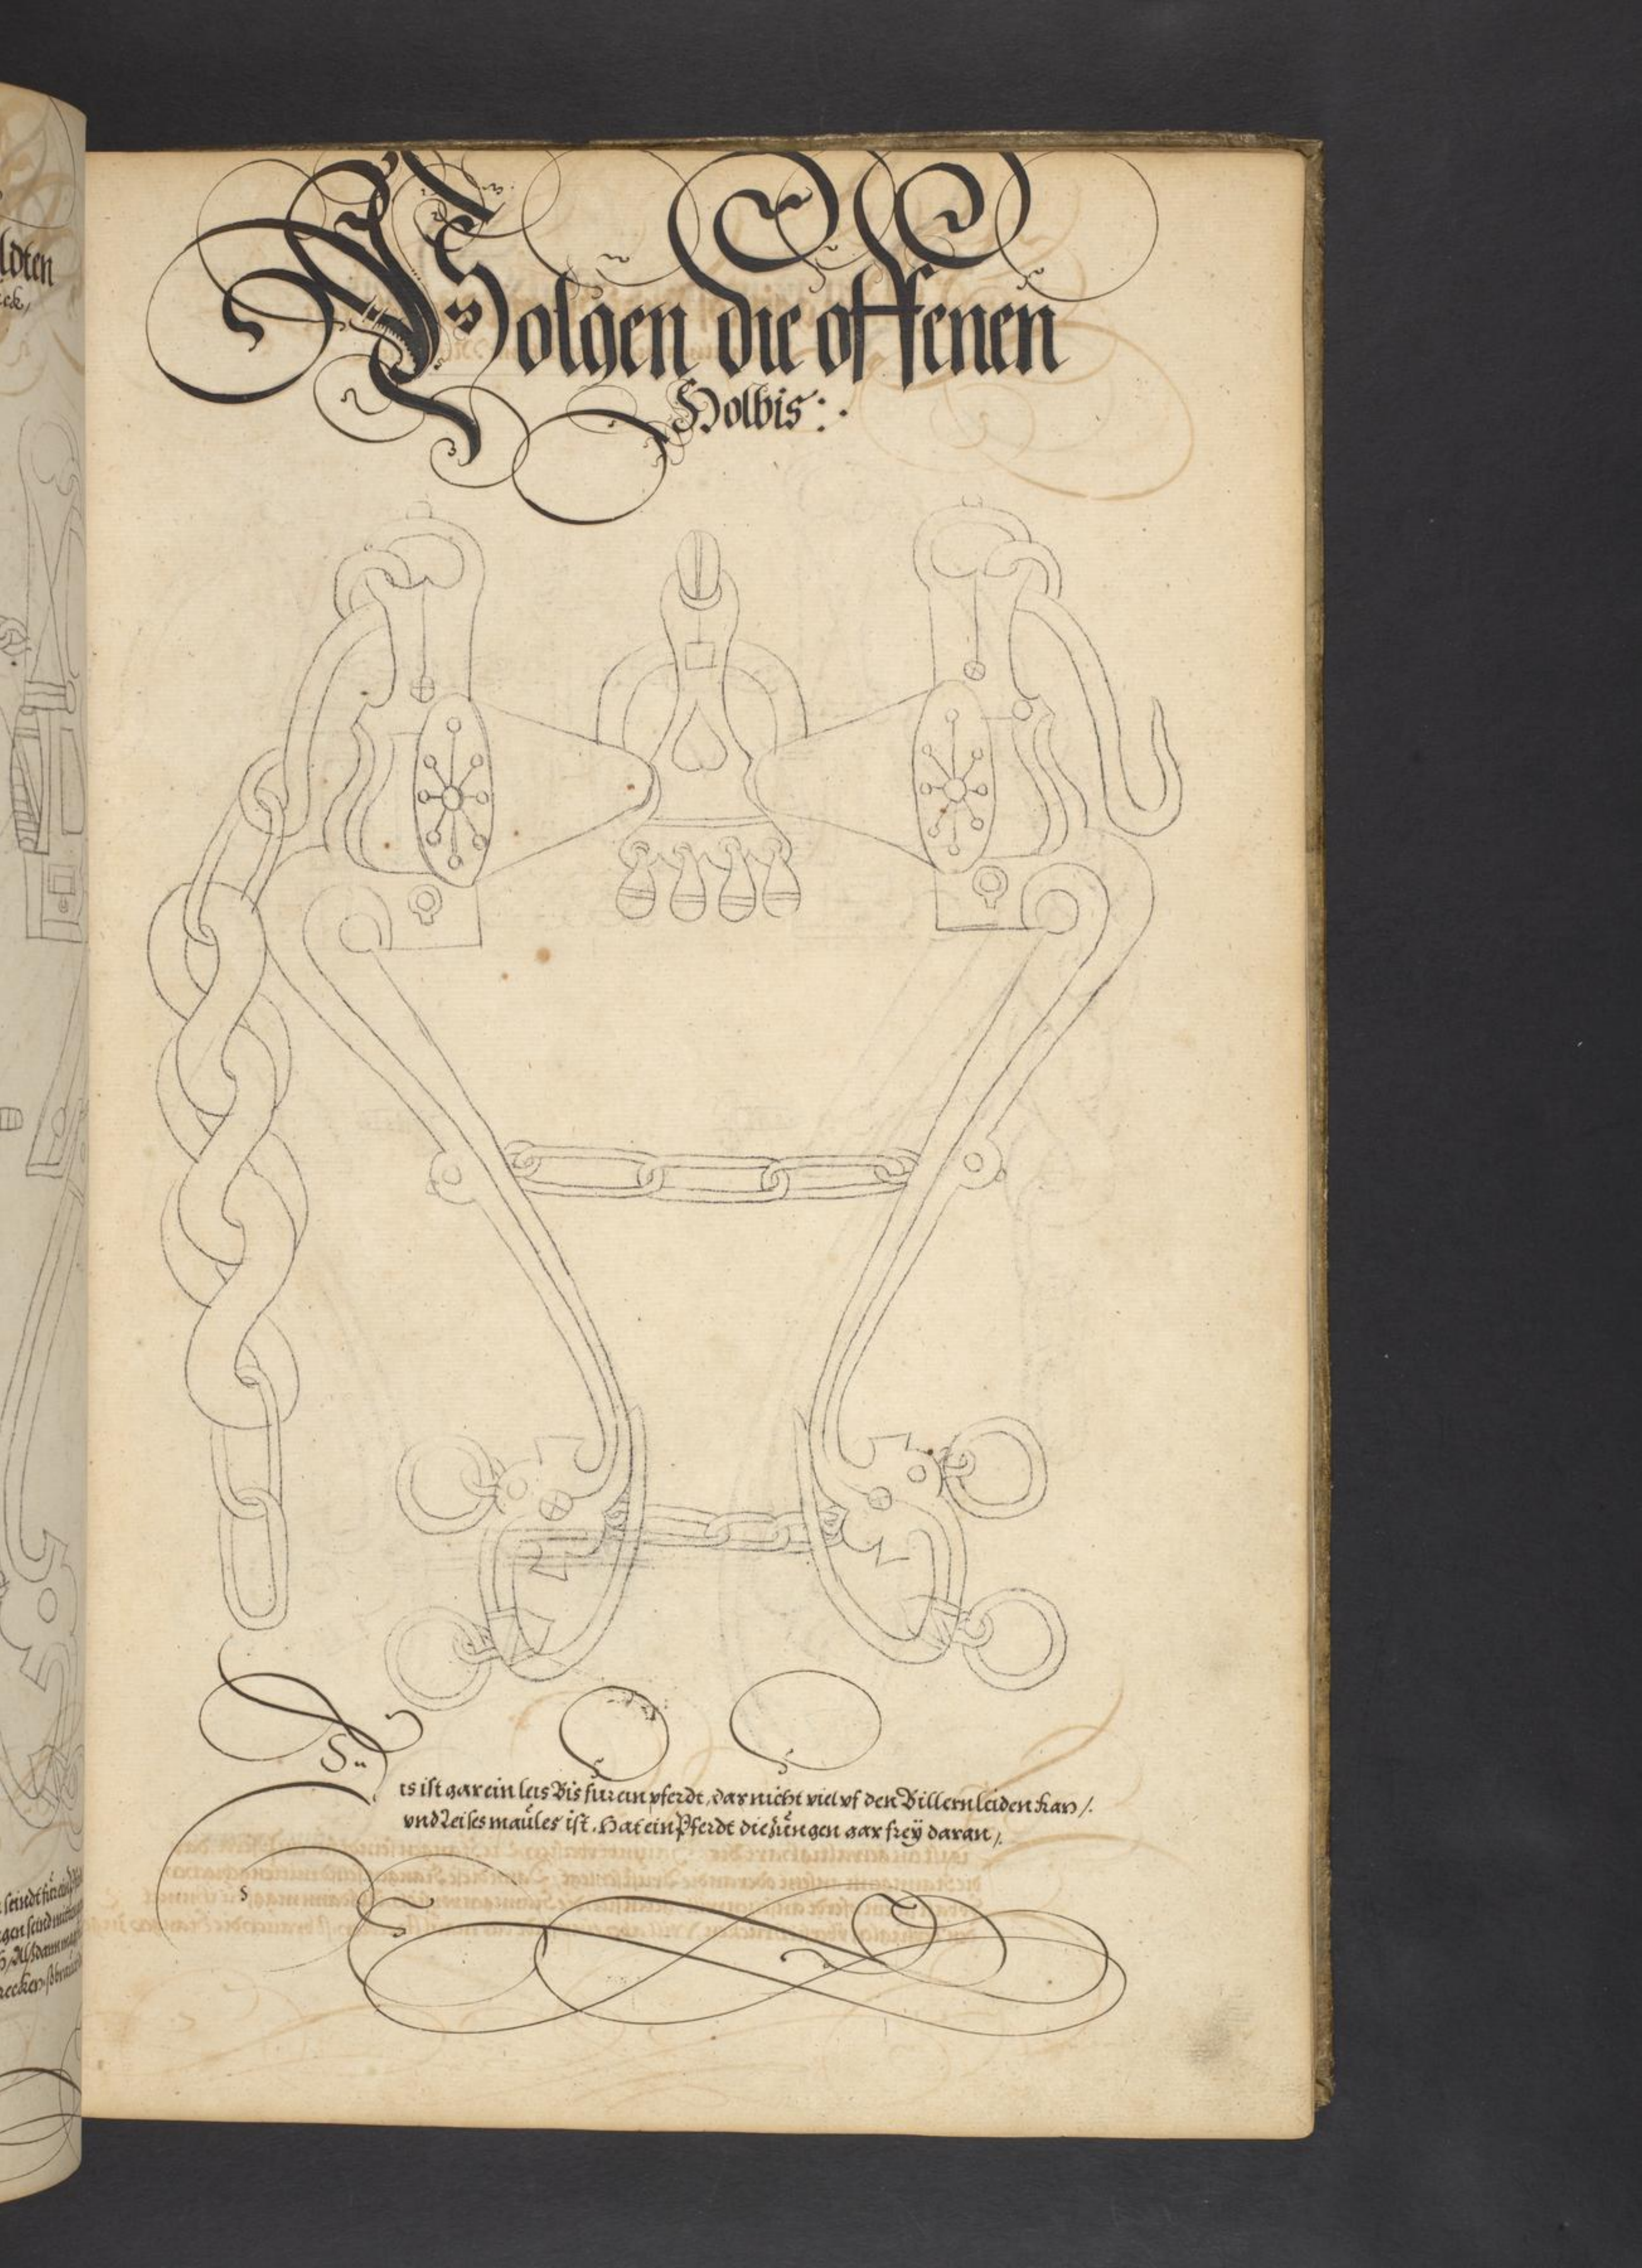 Volgen die offenen
Holbis:.
Dis ist gar ein leis Bis für ein pferdt, das nicht viel vf den Billern leiden kan/.
vnd Leises maules ist. Hat ein Pferdt die zungen gar freÿ daran/.
ldten
ck/